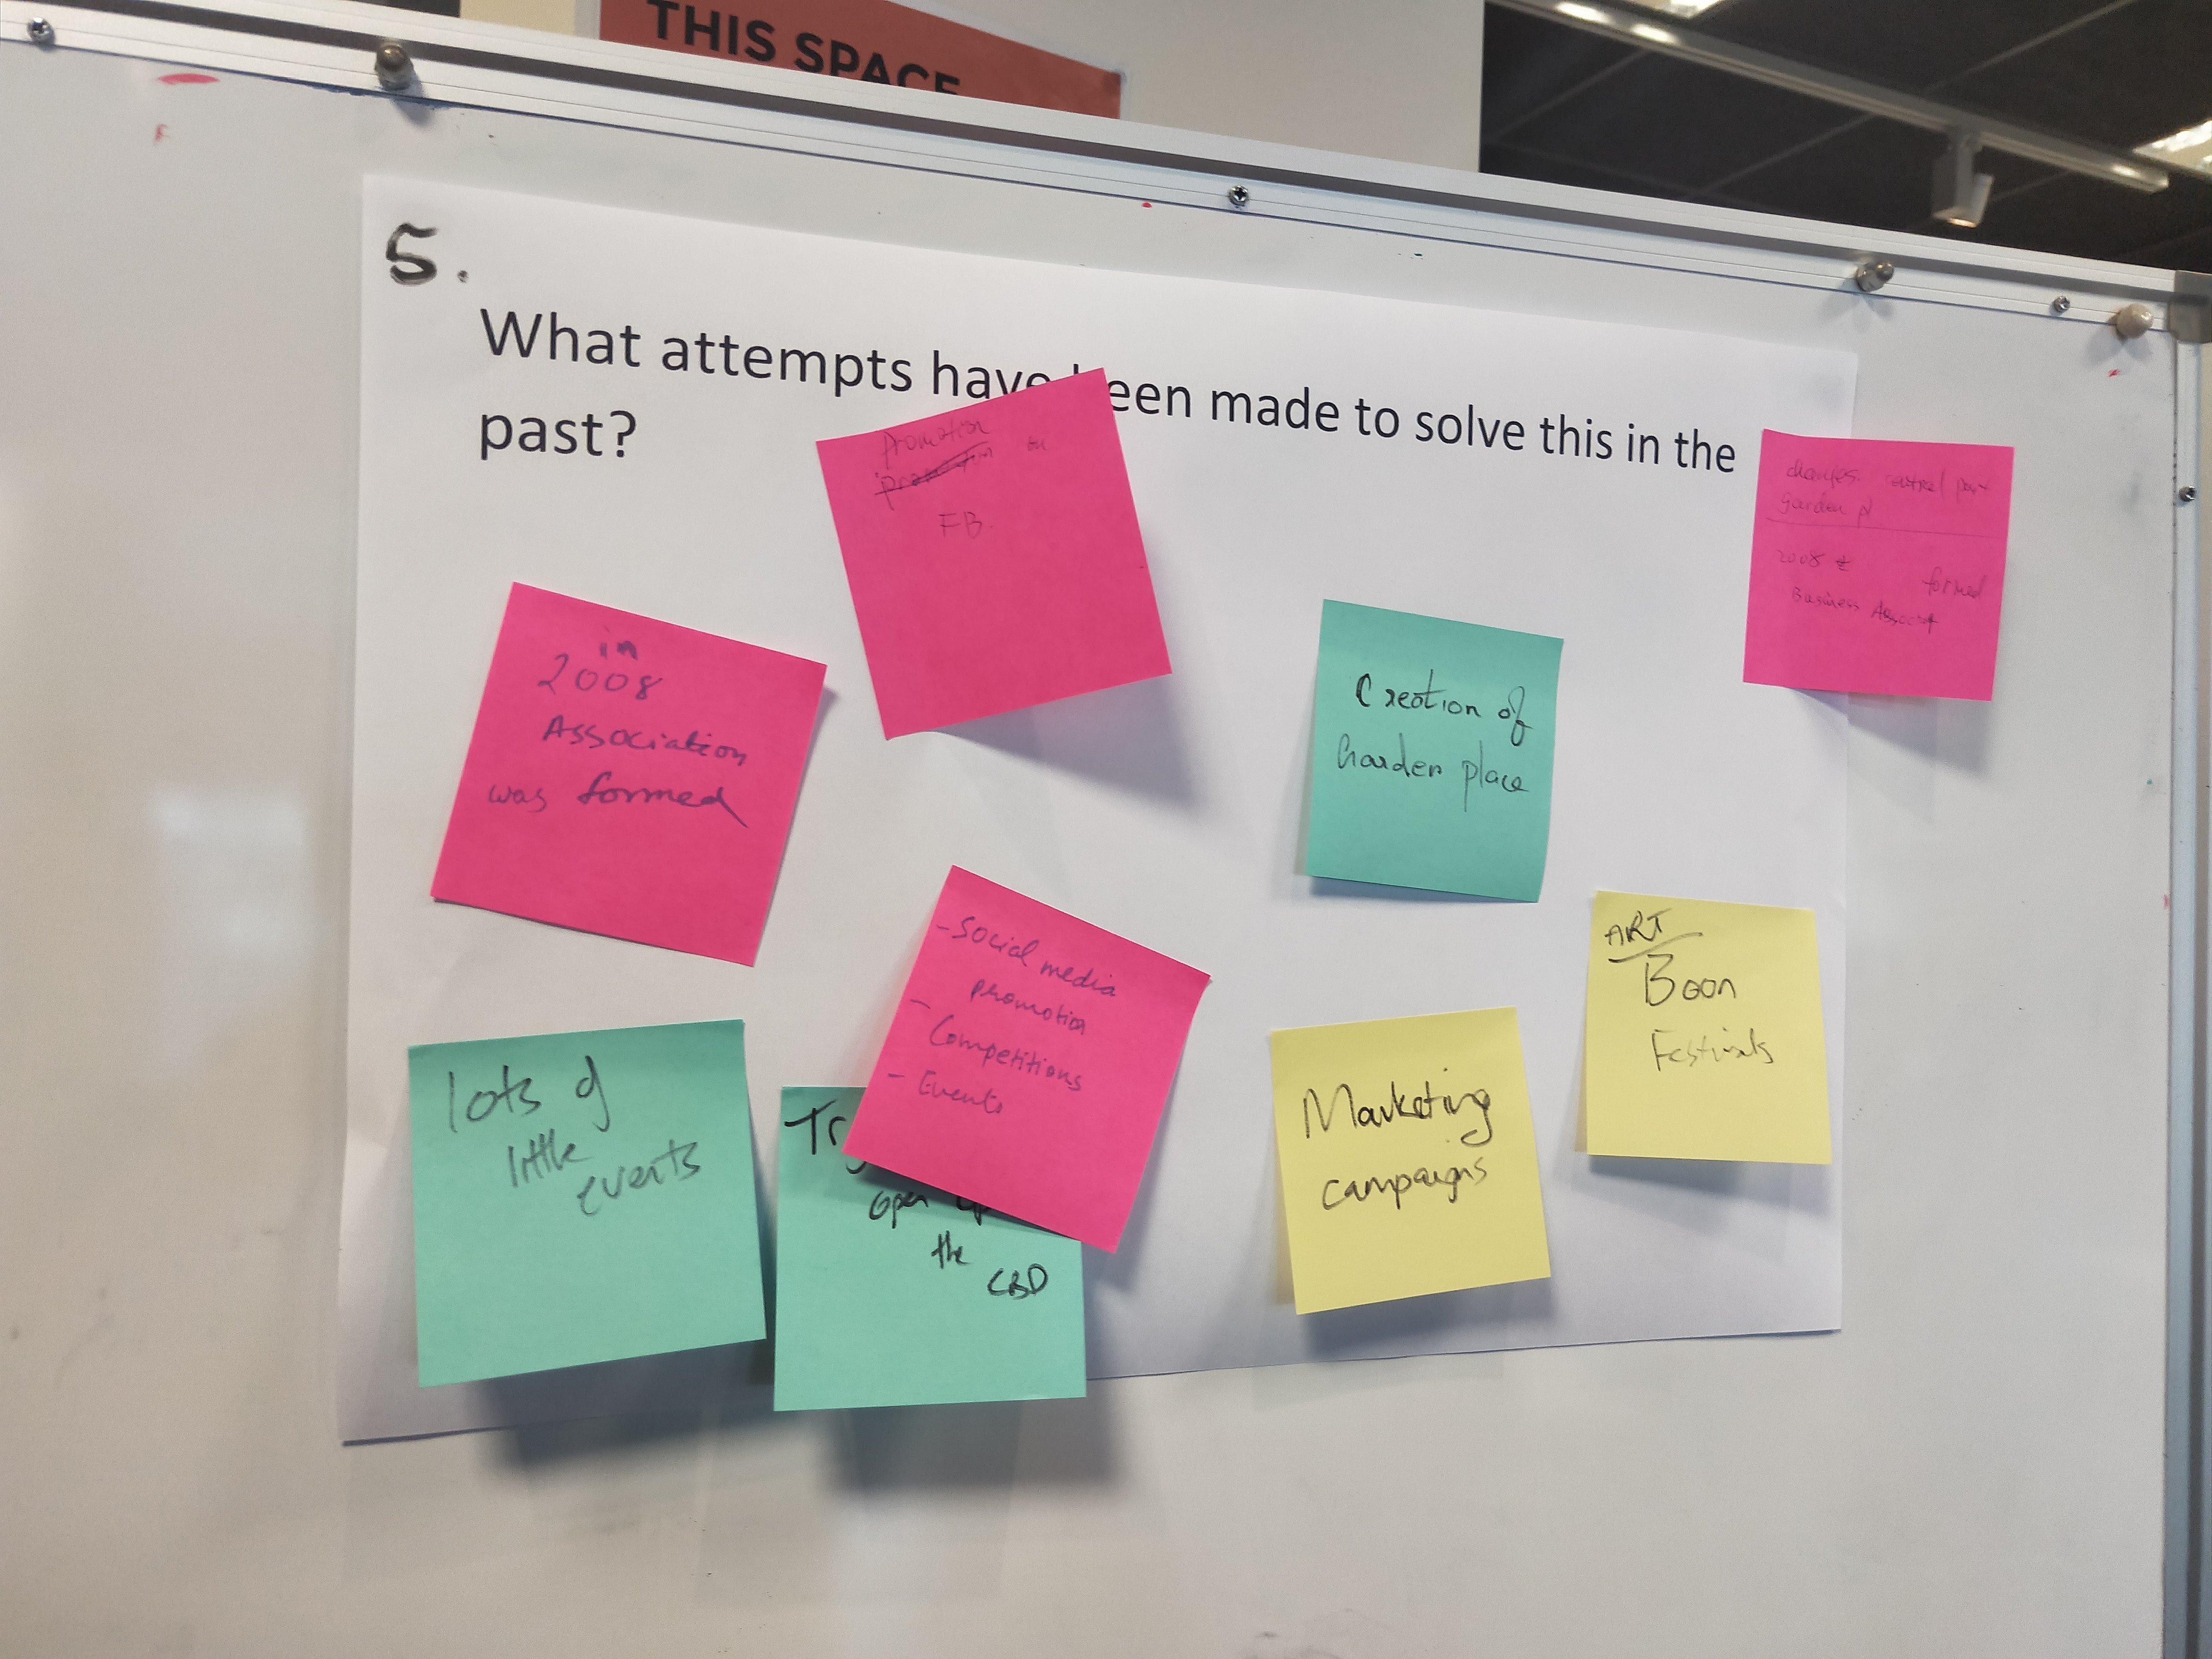 THIS SPACE
5.
What attempts have been made to solve this in the
past?
promotion
on
FB.
changes central part
garden pl
2008
formed
Business Associat
in
2008
Association
was formed
Creation of
Garden place
- Social media
promotion
- Competitions
- Events
ART
Boon
Festivals
lots of
little
events
open up
the
CBD
Marketing
campaigns